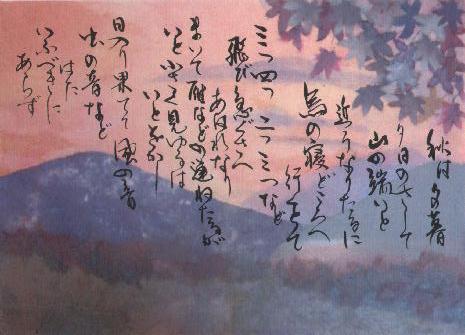 秋は夕暮
夕日のさして
山の端いと
近うなりたるに
烏の寝どころへ
行くとて
三つ四つ二つ三つなど
飛び急ぎさへ
あはれなり
まいて雁などの連ねたるが
いと小さく見ゆるは
いとをかし
日入り果てて風の音
虫の音など
はた
いふべきに
あらず